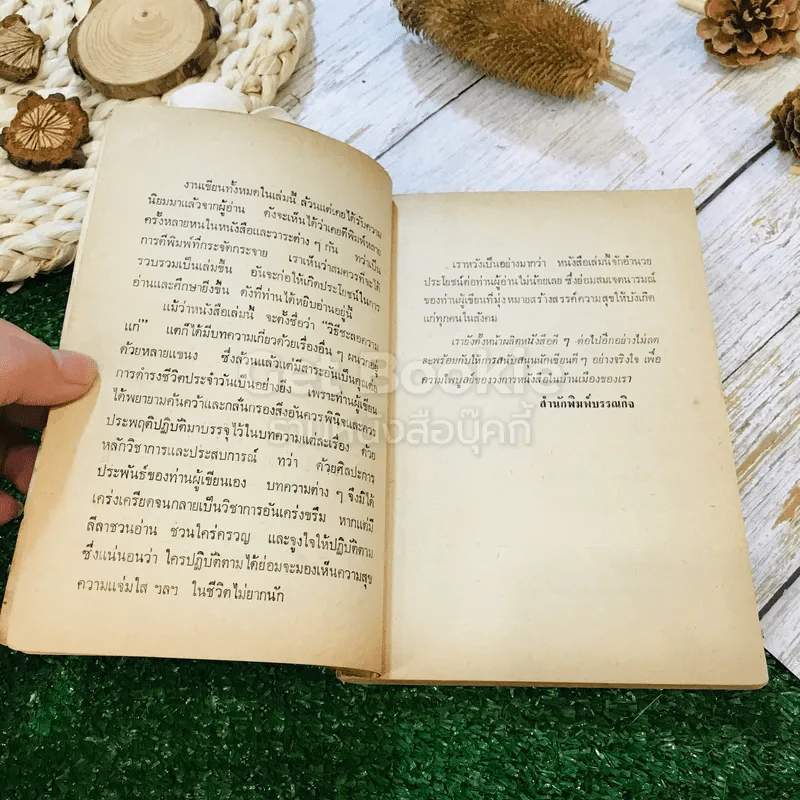 งานเขียนทั้งหมดในเล่มนี้ ล้วนแต่เคยได้รับความ
นิยมมาแล้วจากผู้อ่าน ดังจะเห็นได้ว่าเคยตีพิมพ์หลาย
ครั้งหลายหนในหนังสือและวาระต่าง ๆ กัน ทว่าเป็น
การตีพิมพ์ที่กระจัดกระจาย เราเห็นว่าสมควรที่จะได้
รวบรวมเป็นเล่มขึ้น อันจะก่อให้เกิดประโยชน์ในการ
อ่านและศึกษายิ่งขึ้น ดังที่ท่านได้หยิบอ่านอยู่นี้
แม้ว่าหนังสือเล่มนี้ จะตั้งชื่อว่า "วิธีชะลอความ
แก่" แต่ก็ได้มีบทความเกี่ยวด้วยเรื่องอื่น ๆ ผนวกอยู่
ด้วยหลายแขนง ซึ่งล้วนแล้วแต่มีสาระอันเป็นคุณแก่
การดำรงชีวิตประจำวันเป็นอย่างยิ่ง เพราะท่านผู้เขียน
ได้พยายามค้นคว้าและกลั่นกรองสิ่งอันควรพินิจและควร
ประพฤติปฏิบัติมาบรรจุไว้ในบทความแต่ละเรื่อง ด้วย
หลักวิชาการและประสบการณ์ ทว่า ด้วยศิลปะการ
ประพันธ์ของท่านผู้เขียนเอง บทความต่าง ๆ จึงมิได้
เคร่งเครียดจนกลายเป็นวิชาการอันเคร่งขรึม หากแต่มี
ลีลาชวนอ่าน ชวนใคร่ครวญ และจูงใจให้ปฏิบัติตาม
ซึ่งแน่นอนว่า ใครปฏิบัติตามได้ย่อมจะมองเห็นความสุข
ความแจ่มใส ฯลฯ ในชีวิตไม่ยากนัก
เราหวังเป็นอย่างมากว่า หนังสือเล่มนี้จักอำนวย
ประโยชน์ต่อท่านผู้อ่านไม่น้อยเลย ซึ่งย่อมสมเจตนารมณ์
ของท่านผู้เขียนที่มุ่งหมายสร้างสรรค์ความสุขให้บังเกิด
แก่ทุกคนในสังคม
เรายังตั้งหน้าผลิตหนังสือดี ๆ ต่อไปอีกอย่างไม่ลด
ละพร้อมกับให้การสนับสนุนนักเขียนดี ๆ อย่างจริงใจ เพื่อ
ความไพบูลย์ของวงการหนังสือในบ้านเมืองของเรา
สำนักพิมพ์บรรณกิจ
Get Bookie
ร้านหนังสือบุ๊คกี้